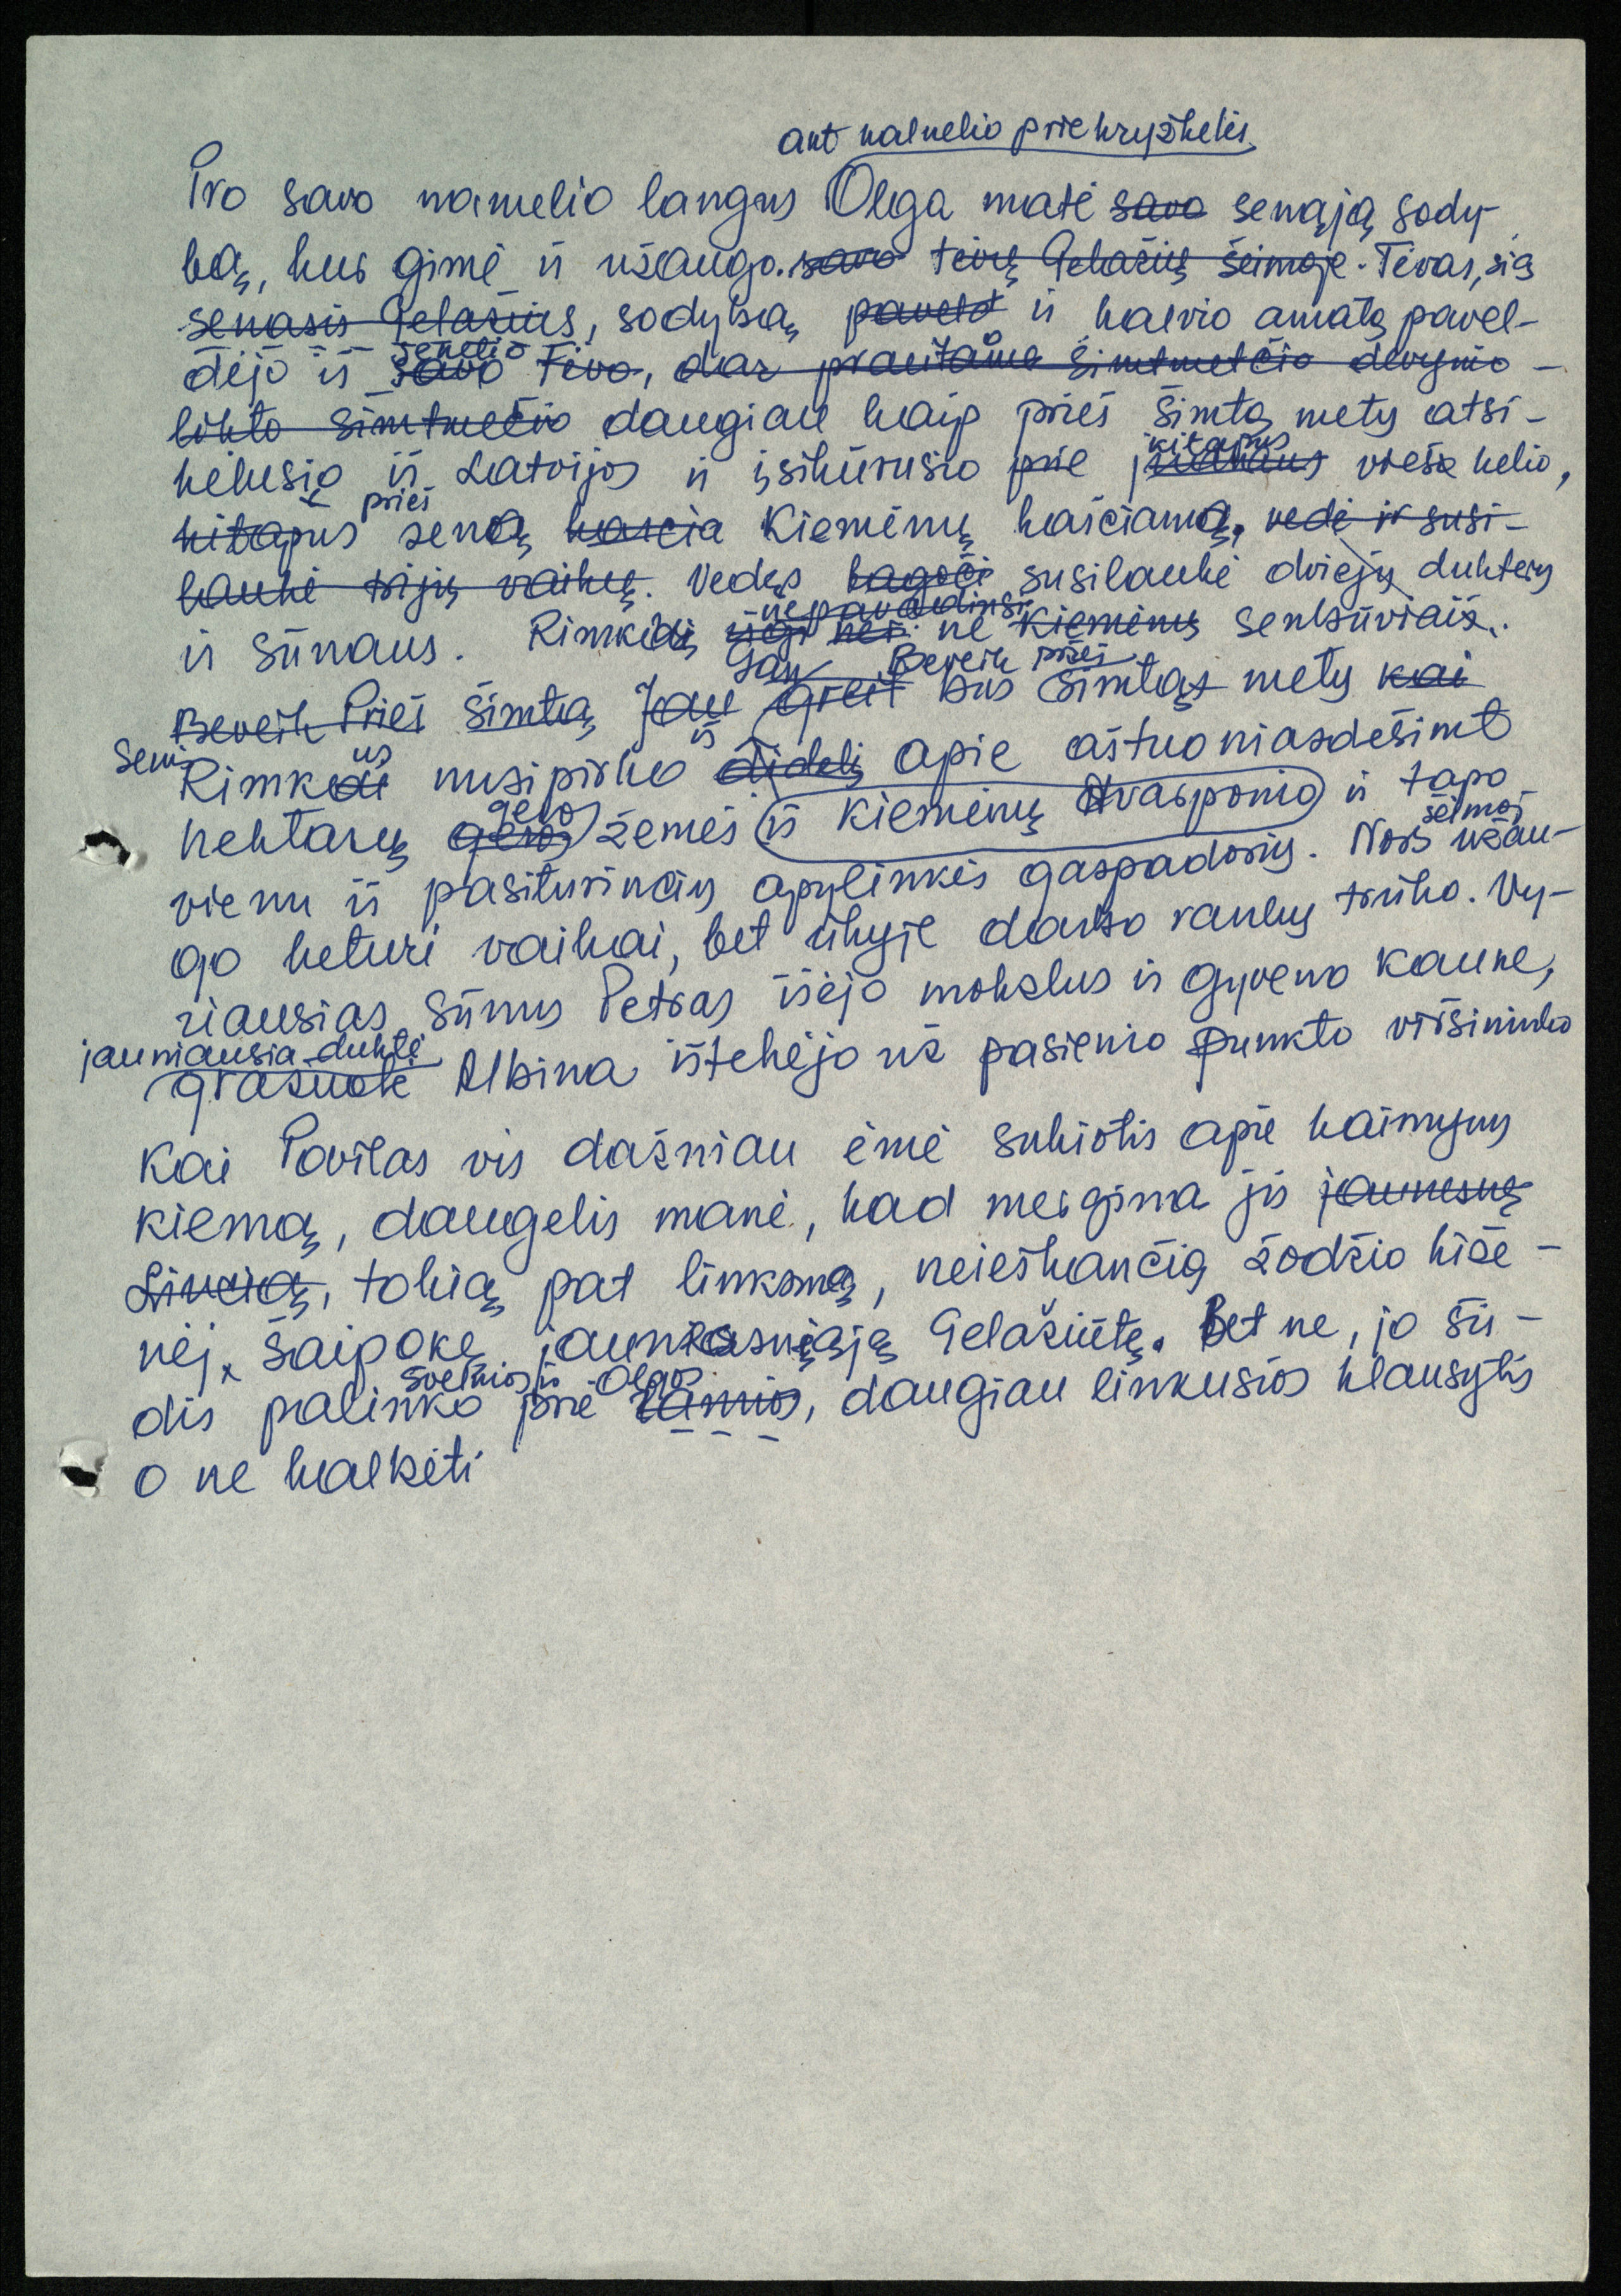 ant kalnelio prie kryžkelės
Pro savo namelio langus Olga matė savo senąją sody-
bą, kur gimė ir užaugo. savo tėvų Gelažių šeimoje. Tėvas, šią
senasis Gelažius, sodybą paveld ir kalvio amatą pavel-
senelio
dėjo iš savo tėvo, dar praeitame šimtmečio devynio-
likto šimtmečio daugiau kaip prieš šimtą metų atsi-
kitapus
kėlusio iš Latvijos ir įsikūrusio prie vieškelio,
prieš
kitapus seną karčia Kiemėnų karčiamą. vedė ir susi-
laukė trijų vaikų. Vedęs bagoči susilaukė dviejų dukterų
nepavadinsi
ir sūnaus. Rimkų irgi nei ne Kiemėnų senbūviais.
Gan Beveik prieš
Beveik Prieš šimtą Jau greit bus šimtas metų kai
Seni us iš
Rimkai nusipirko didelį apie aštuoniasdešimt
gero
hektarų geros žemės iš Kiemėnų dvarponio ir tapo
šeimoj
vienu iš pasiturinčių apylinkės gaspadorių. Nors užau-
go keturi vaikai, bet ūkyje darbo rankų trūko. Vy-
riausias sūnus Petras išėjo mokslus ir gyveno Kaune,
jauniausia duktė
gražuolė Albina ištekėjo už pasienio punkto viršininko
Kai Povilas vis dažniau ėmė sukiotis apie kaimynų
kiemą, daugelis manė, kad mergina jis jaunesnę
Lincią, tokią pat linksmą, neieškančią žodžio kiše-
nėj, šaipokę jaunesniąją Gelažiūtę. Bet ne, jo šir-
švelnios ir Olgos
dis palinko prie ramios, daugiau linkusios klausytis
o ne kalbėti